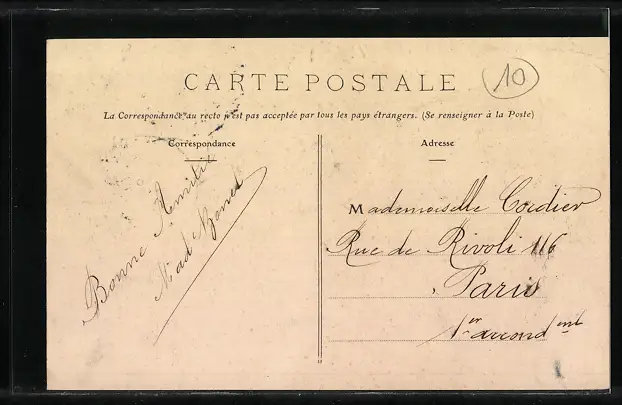 CARTE POSTALE
10
La Correspondance au recto n'est pas acceptée par tous les pays étrangers. (Se renseigner à la Poste)
Correspondance
Adresse
Bonne
Mad
Mademoiselle Cordier
Rue de Rivoli 116
Paris
1er arrond ent